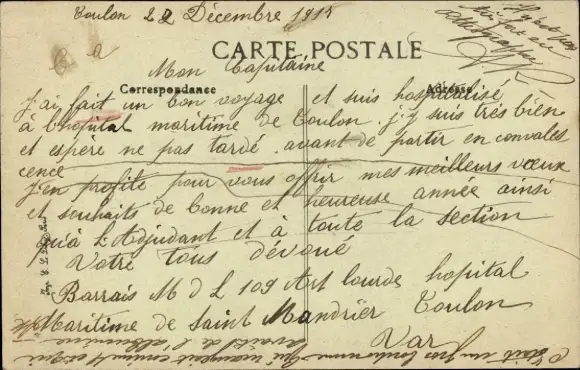 Toulon 22 Décembre 1915
CARTE POSTALE
Mon Capitaine
Correspondance
Adresse
J'ai fait un bon voyage et suis hospitalisé
à l'hopital maritime de Toulon. j'y suis très bien
et espère ne pas tardé avant de partir en convales
cence
J'en profite pour vous offrir mes meilleurs vœux
et souhaits de bonne et heureuse année ainsi
qu'à l'Adjudant et à toute la section
Votre tous dévoué
Barrais M d L 109 Art lourde hopital
Maritime de Saint Mandrier Toulon
Var
C'était un gros bonhomme qui
avait de l'albumine